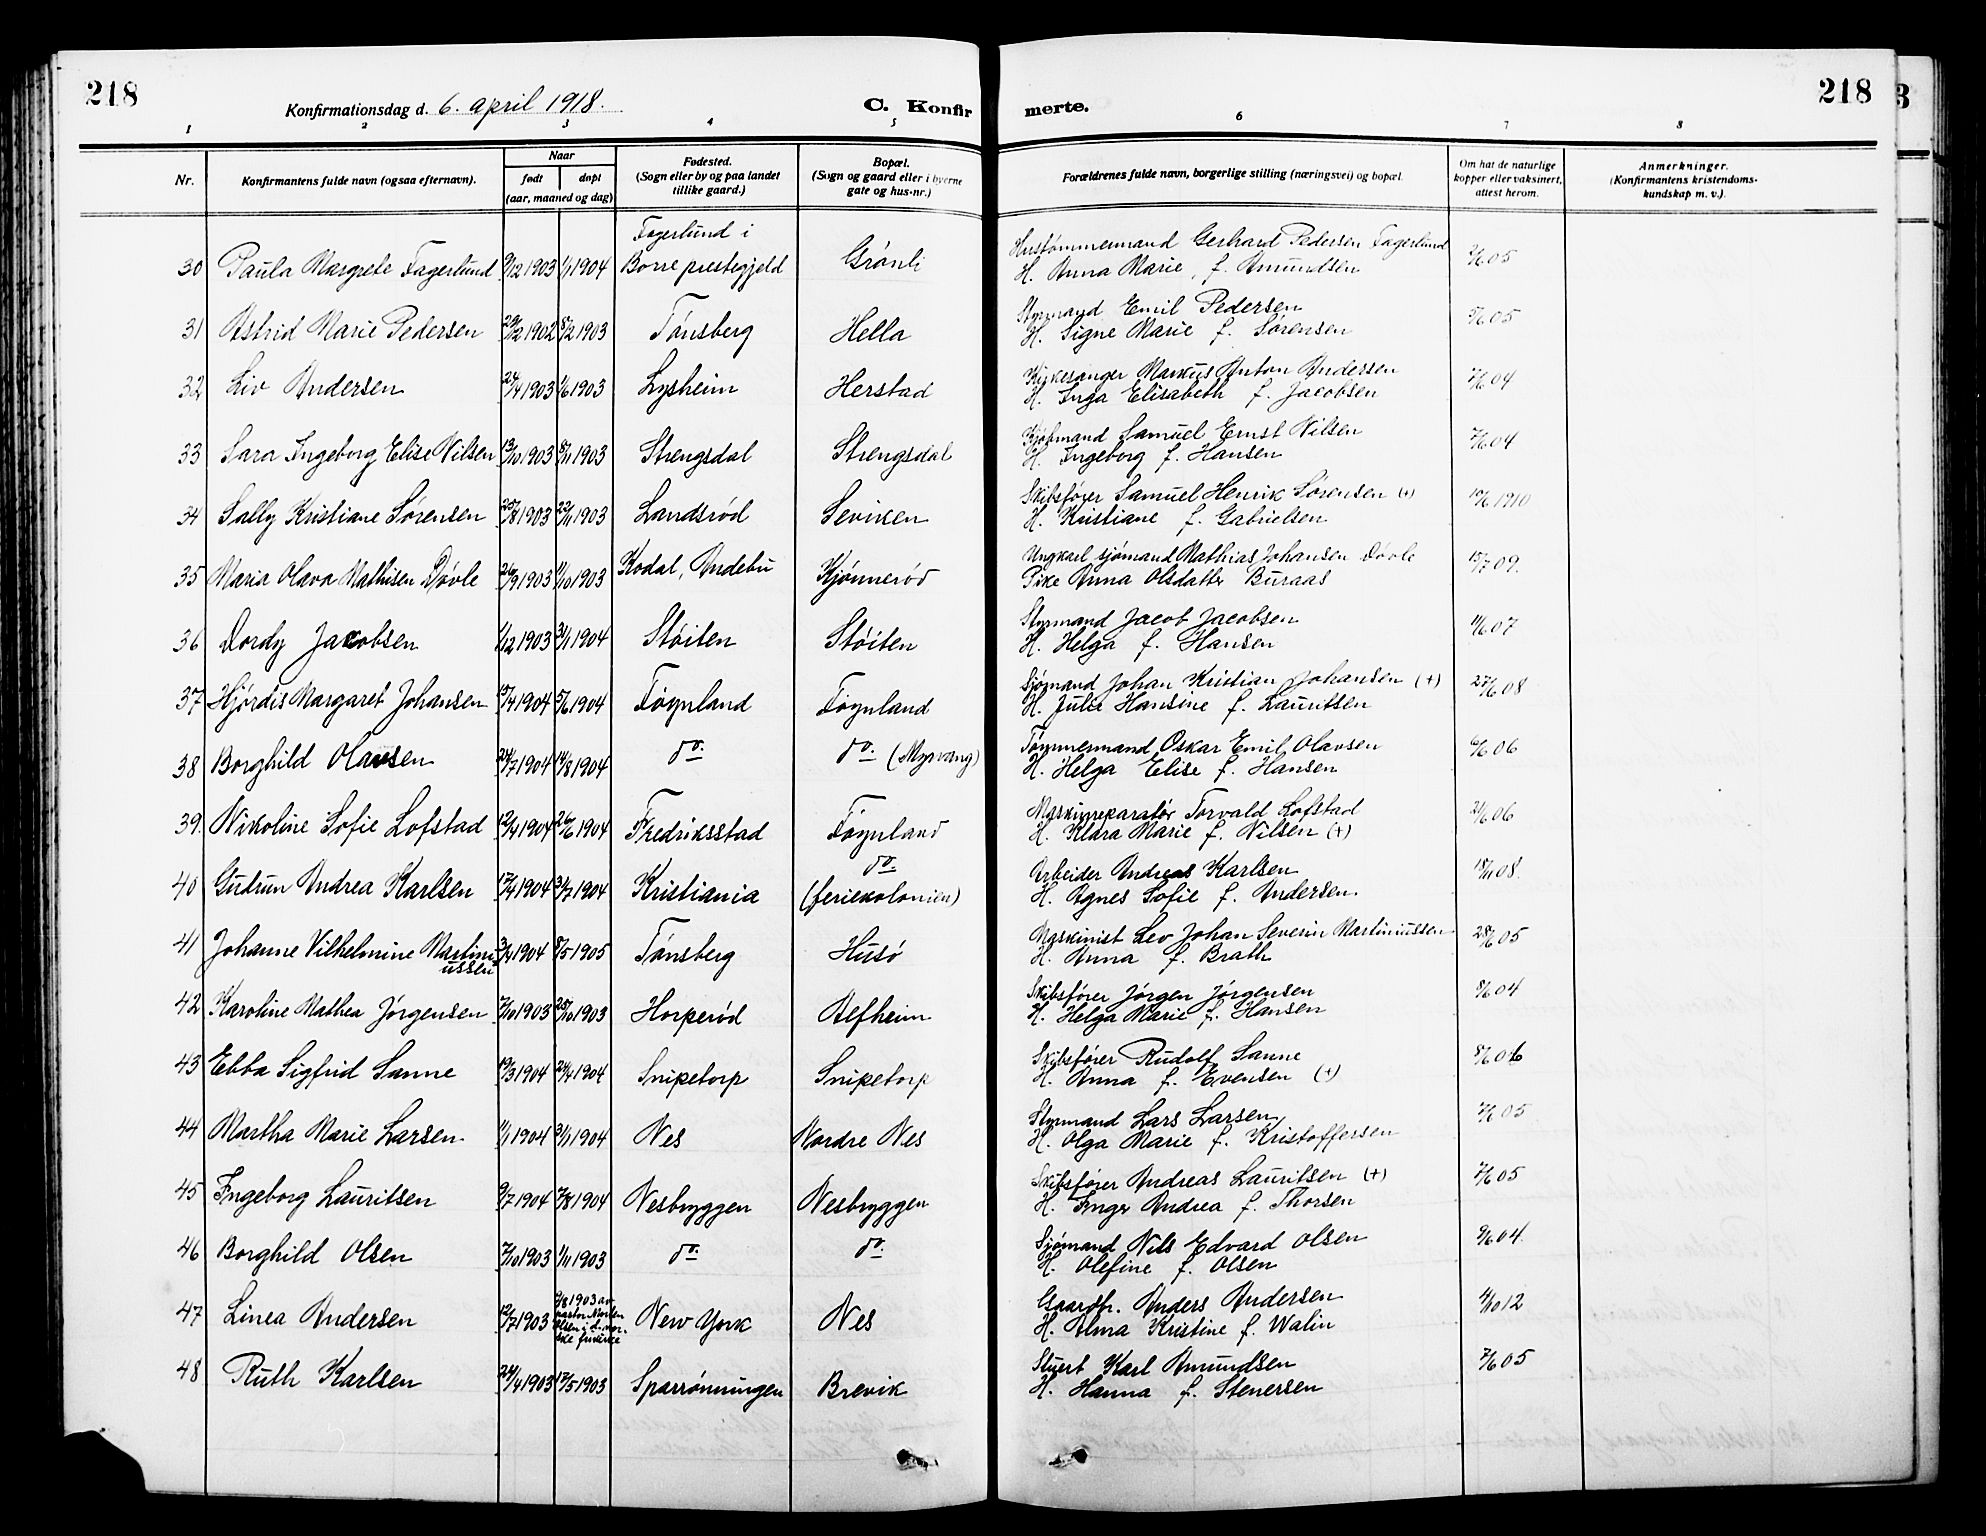 218
Konfirmationsdag d. 6. april 1918.
C. Konfir
merte.
218
1 2 3 4 5 6 7 8
Nr.
Konfirmantens fulde navn (ogsaa efternavn).
Naar
født døpt
(aar, maaned og dag)
Fødested.
(Sogn eller by og paa landet
tillike gaard.)
Bopæl.
(Sogn og gaard eller i byerne
gate og hus-nr.)
Forældrenes fulde navn, borgerlige stilling (næringsvei) og bopæl.
Om hat de naturlige
kopper eller vaksinert,
attest herom.
Anmerkninger.
(Konfirmantens kristendoms-
kundskap m. v.)
Fagerlund i
30 Paula Margrete Fagerlund 9/12 1903 1/1 1904 Borre prestegjeld Grønli Hustømmermand Gerhard Pedersen Fagerlund
H. Anna Marie, f. Amundsen
31 Astrid Marie Pedersen 29/12 1902 8/2 1903 Tønsberg Hella Styrmand Emil Pedersen
H. Signe Marie f. Sørensen
32 Liv Andersen 24/4 1903 1/6 1903 Lysheim Herstad Kirkesanger Markus Anton Andersen 04
H. Inga Elisabeth f. Jacobsen
33 Sara Ingeborg Elise Nilsen 13/10 1903 8/11 1903 Strengsdal Strengsdal Kjøbmand Samuel Ernst Nilsen 04
H. Ingeborg f. Hansen
34 Sally Kristiane Sørensen 25/8 1903 22/11 1903 Landsrød Seviken Skibsfører Samuel Henrik Sørensen (+) 10/6 1910
H. Kristiane f. Gabrielsen
35 Maria Olava Mathisen Døvle 26/9 1903 11/10 1903 Kodal, Andebu Kjønnerød Ungkarl sjømand Mathias Johansen Døvle 15/7 09.
Pike Anna Olsdatter Buraas
36 Dordy Jacobsen 1/12 1903 31/1 1904 Støiten Støiten Styrmand Jacob Jacobsen 11/6 07
H. Helga f. Hansen
37 Hjørdis Margaret Johansen 15/4 1904 5/6 1904 Føynland Føynland Sjømand Johan Kristian Johansen (+) 27/6 08
H. Julie Hansine f. Lauritsen
38 Borghild Olavsen 24/7 1904 14/8 1904 do. do. (Myrvang) Tømmermand Oskar Emil Olavsen 6/6 06
H. Helga Elise f. Hansen
39. Nikoline Sofie Lofstad 12/4 1904 26/6 1904 Fredriksstad Føynland Maskinreparatør Torvald Lofstad 21/6 06
H. Klara Marie f. Nilsen (+)
do.
40 Gudrun Andrea Karlsen 17/4 1904 31/7 1904 Kristiania (feriekolonien) Arbeider Andreas Karlsen 18/11 08.
H. Agnes Sofie f. Andersen.
41 Johanne Vilhelmine Martini-
ussen 3/4 1904 8/5 1905 Tønsberg Husø Maskinist Lev Johan Severin Martiniussen 28/6 05
H. Anna f. Brath
42 Karoline Mathea Jørgensen 7/10 1903 25/10 1903 Horperød Alfheim Skibsfører Jørgen Jørgensen 8/6 04
H. Helga Marie f. Hansen
43 Ebba Sigfrid Sanne 19/3 1904 24/4 1904 Snipetorp Snipetorp Skibsfører Rudolf Sanne 8/6 06
H. Anna f. Evensen (+)
44 Martha Marie Larsen. 1/1 1904 31/1 1904 Nes Nordre Nes Styrmand Lars Larsen 05
H. Olga Marie f. Kristoffersen
45 Ingeborg Lauritsen 9/7 1904 7/8 1904 Nesbryggen Nesbryggen Skibsfører Andreas Lauritsen (+) 7/6 05
H. Inger Andrea f. Thorsen
46 Borghild Olsen 7/10 1903 1/11 1903 do. do. Sjømand Nils Edvard Olsen 9/6 04.
H. Olefine f. Olsen
47 Linea Andersen 12/7 1903 2/8 1903 av
pastor Morten
Olsen i d. nor-
ske frikirke New York Nes Gaardbr. Anders Andersen 4/10 12
H. Alma Kristine f. Walin
48 Ruth Karlsen 24/4 1903 17/5 1903 Sparrønningen Brevik Stuert Karl Amundsen 7/6 05
H. Hanna f. Stenersen